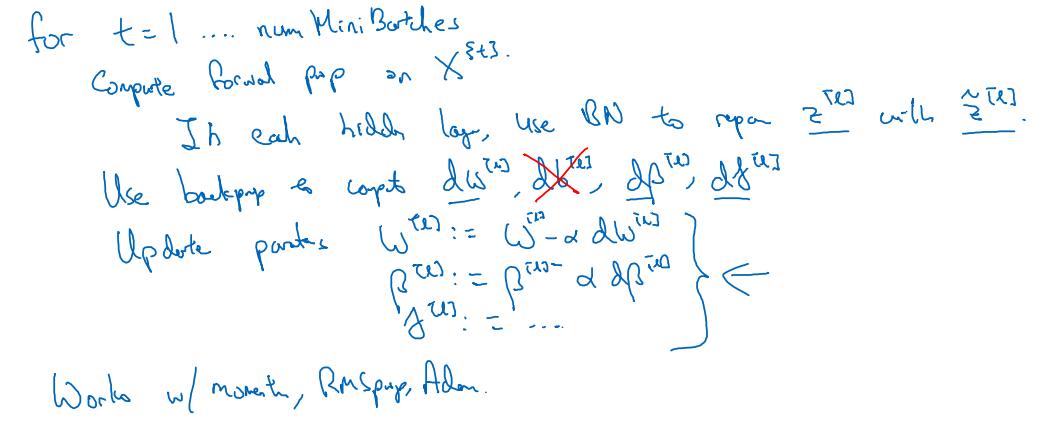 for t = 1 .... num Mini Batches
Compute forward prop on X^{t}.
In each hidden layer, use BN to repar z^[l] with z̃^[l].
Use backprop to comput dw^[l], db^[l], dβ^[l], dγ^[l]
Update params w^[l] := w^[l] - α dw^[l]
β^[l] := β^[l] - α dβ^[l]
γ^[l] := ....
Works w/ momentum, RMSprop, Adam.